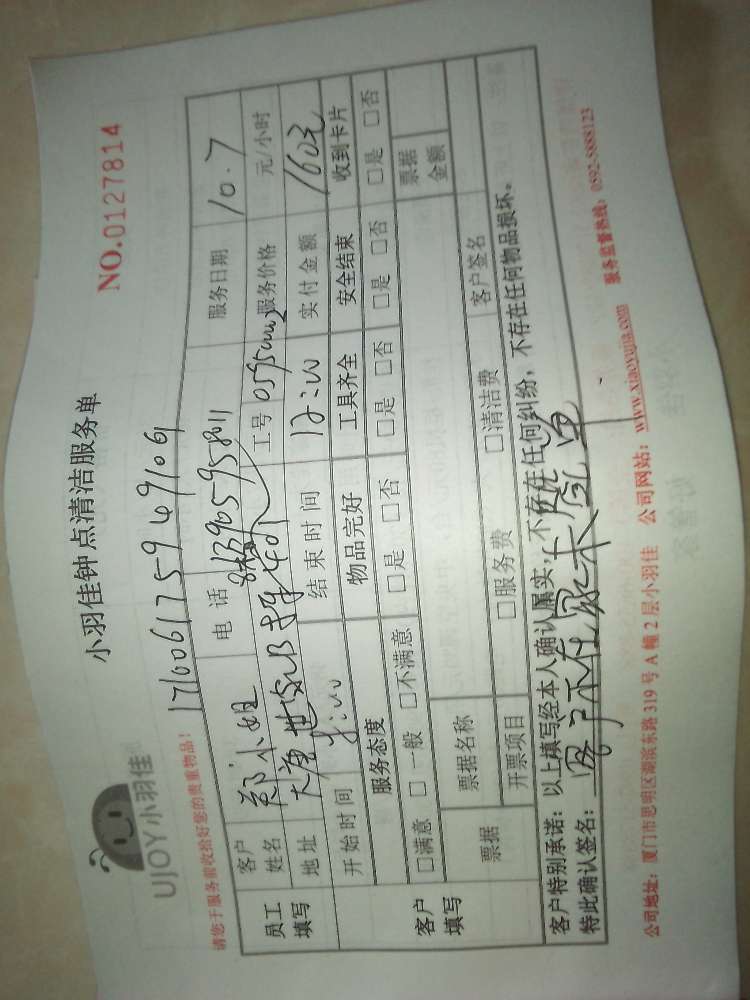 UJOY小羽佳
小羽佳钟点清洁服务单
NO.0127814
请您于服务前收拾好您的贵重物品!
171006175949106
员工填写
客户姓名 郑小姐 电话 13905958011 服务日期 10.7
地址 大唐世家 工号 服务价格 元/小时
开始时间 结束时间 12:00 实付金额 160元
客户填写
服务态度 物品完好 工具齐全 安全结束 收到卡片
□满意 □一般 □不满意 □是 □否 □是 □否 □是 □否 □是 □否
票据 票据名称 票据金额
开票项目 □服务费 □清洁费 客户签名
客户特别承诺: 以上填写经本人确认属实,不存在任何纠纷,不存在任何物品损坏。
特此确认签名: 客户不在家
公司地址: 厦门市思明区湖滨东路 319 号 A 幢 2 层小羽佳 公司网站: www.xiaoyujia.com 服务监督热线: 0592-5888123